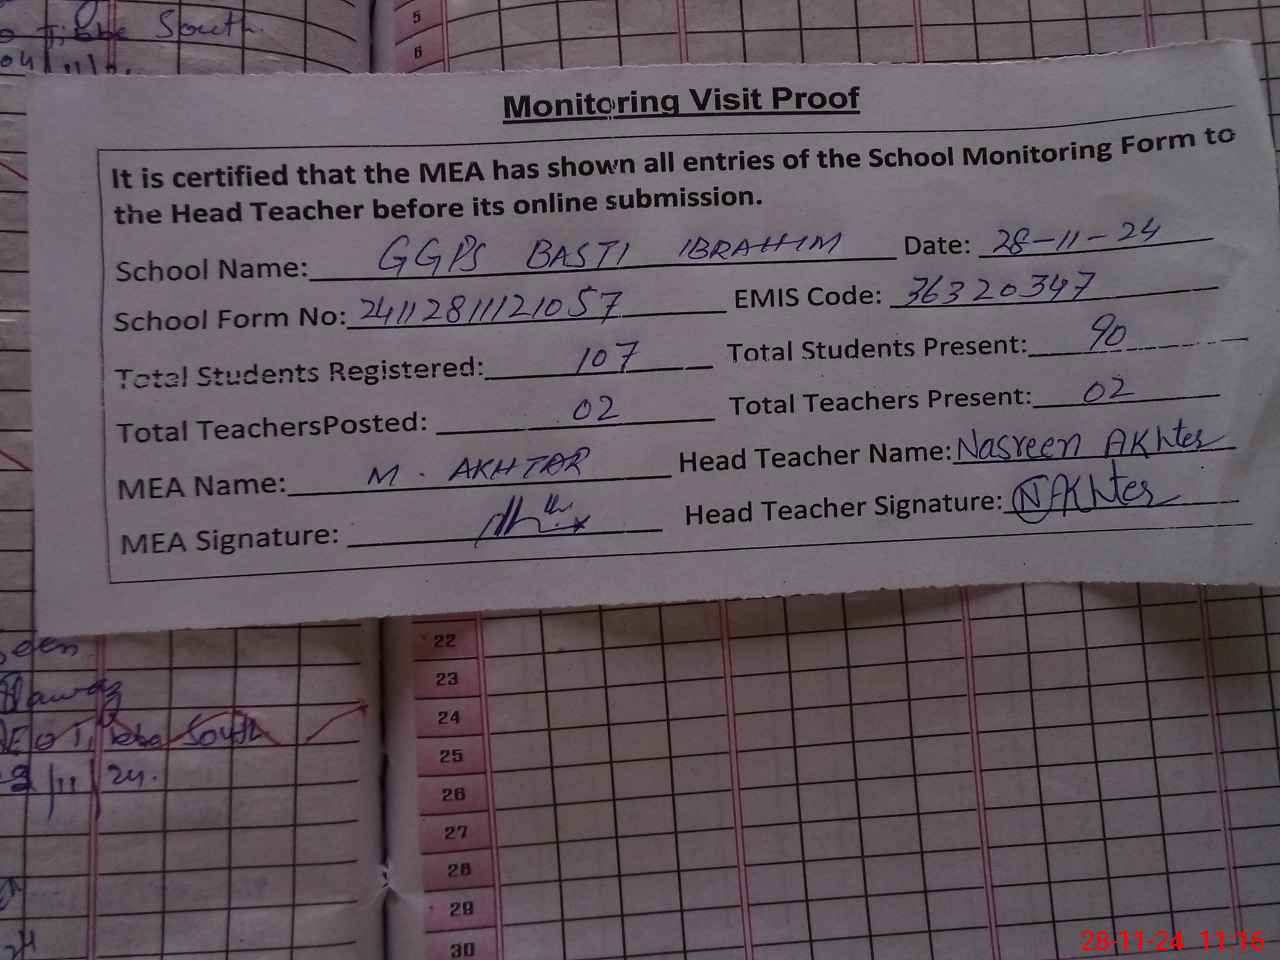 Tibba South.
04/11/2
5
6
Monitoring Visit Proof
It is certified that the MEA has shown all entries of the School Monitoring Form to
the Head Teacher before its online submission.
School Name: GGPS BASTI IBRAHIM Date: 28-11-24
School Form No: 24112811121057 EMIS Code: 36320347
Total Students Registered: 107 Total Students Present: 90
Total TeachersPosted: 02 Total Teachers Present: 02
MEA Name: M. AKHTAR Head Teacher Name: Nasreen AKhter
MEA Signature: Head Teacher Signature: NAKhter
22
23
24
South
25
/11/24.
26
27
28
29
30
28-11-24 11:16